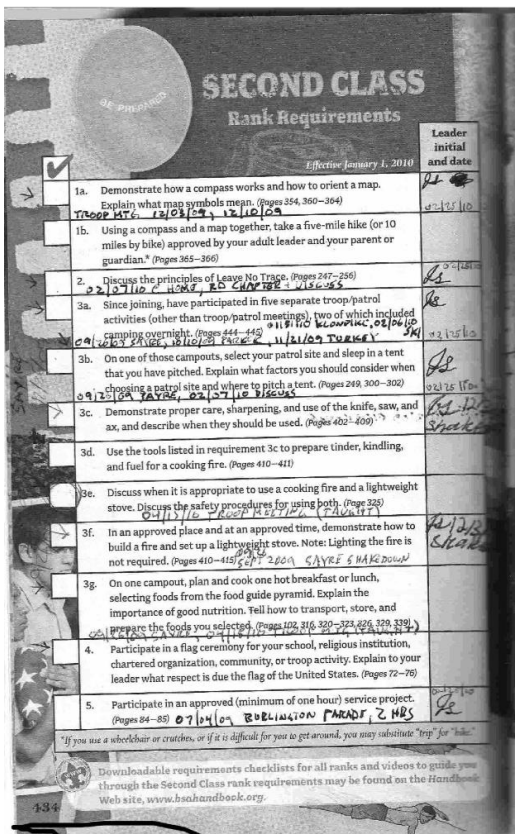 BE PREPARED
SECOND CLASS
Rank Requirements
Effective January 1, 2010
Leader
initial
and date
1a. Demonstrate how a compass works and how to orient a map.
Explain what map symbols mean. (Pages 354, 360–364)
TROOP MTG 12/03/09, 12/10/09
02/25/10
1b. Using a compass and a map together, take a five-mile hike (or 10
miles by bike) approved by your adult leader and your parent or
guardian.* (Pages 365–366)
2. Discuss the principles of Leave No Trace. (Pages 247–256)
02/07/10 @ HOME, RD CHAPTER + DISCUSS
3a. Since joining, have participated in five separate troop/patrol
activities (other than troop/patrol meetings), two of which included
camping overnight. (Pages 444–445)
KLONDIKE, 02/06/10
SKI
SAYRE, 10/10/09 PARKER, 11/21/09 TURKEY
02/25/10
3b. On one of those campouts, select your patrol site and sleep in a tent
that you have pitched. Explain what factors you should consider when
choosing a patrol site and where to pitch a tent. (Pages 249, 300–302)
SAYRE, 02/07/10 DISCUSS
3c. Demonstrate proper care, sharpening, and use of the knife, saw, and
ax, and describe when they should be used. (Pages 402–409)
3d. Use the tools listed in requirement 3c to prepare tinder, kindling,
and fuel for a cooking fire. (Pages 410–411)
3e. Discuss when it is appropriate to use a cooking fire and a lightweight
stove. Discuss the safety procedures for using both. (Page 325)
TROOP MEETING (TAUGHT)
3f. In an approved place and at an approved time, demonstrate how to
build a fire and set up a lightweight stove. Note: Lighting the fire is
not required. (Pages 410–415) SEPT 2009 SAYRE SHAKEDOWN
3g. On one campout, plan and cook one hot breakfast or lunch,
selecting foods from the food guide pyramid. Explain the
importance of good nutrition. Tell how to transport, store, and
prepare the foods you selected. (Pages 102, 316, 320–323, 326, 329, 339)
4. Participate in a flag ceremony for your school, religious institution,
chartered organization, community, or troop activity. Explain to your
leader what respect is due the flag of the United States. (Pages 72–76)
5. Participate in an approved (minimum of one hour) service project.
(Pages 84–85) 07/04/09 BURLINGTON PARADE, 2 HRS
*If you use a wheelchair or crutches, or if it is difficult for you to get around, you may substitute "trip" for "hike."
Downloadable requirements checklists for all ranks and videos to guide you
through the Second Class rank requirements may be found on the Handbook
Web site, www.bsahandbook.org.
434